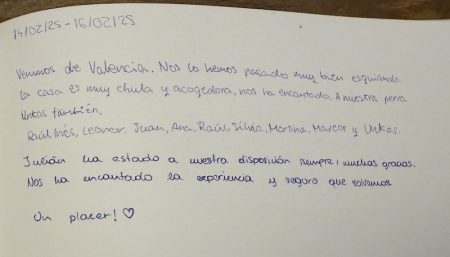 14/02/25 - 16/02/25
Venimos de Valencia. Nos lo hemos pasado muy bien esquiando.
La casa es muy chula y acogedora, nos ha encantado. A nuestra perra
Urkas también.
Raúl, Inés, Leonor, Juan, Ana, Raúl, Silvia, Martina, Marcos y Urkas.
Julián ha estado a nuestra disposición siempre, muchas gracias.
Nos ha encantado la experiencia y seguro que volvemos
Un placer! ♡